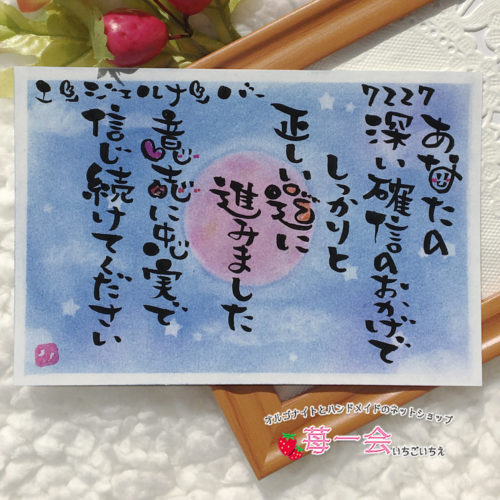 エンジェルナンバー
7227
あなたの
深い確信のおかげで
しっかりと
正しい道に
進みました
意志に忠実で
信じ続けてください
オルゴナイトとハンドメイドのネットショップ
苺一会
いちごいちえ